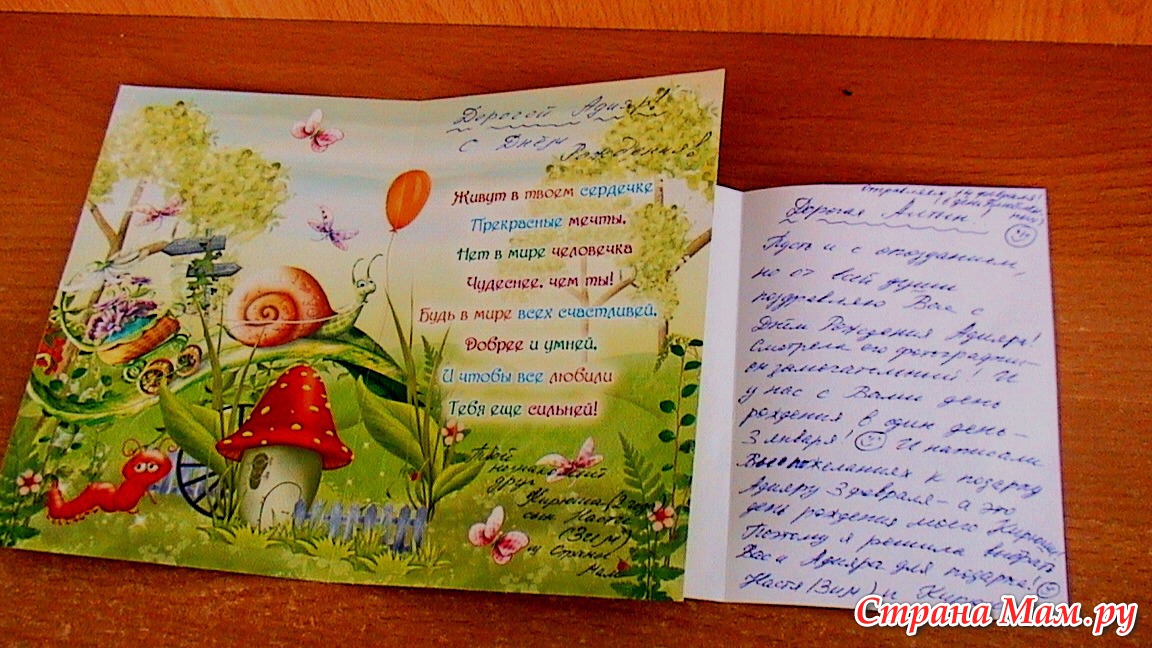 Дорогой Адияр!
С Днём
Рождения!
Живут в твоем сердечке
Прекрасные мечты.
Нет в мире человечка
Чудеснее, чем ты!
Будь в мире всех счастливей,
Добрее и умней,
И чтобы все любили
Тебя еще сильней!
Твой
незнакомый
друг
Кирюша
сын Насти
(Зим)
из Страны
Мам
отправляем 14 февраля!
Дорогая Алтын!
Пусть и с опозданием,
но от всей души
поздравляю Вас с
Днём Рождения Адияра!
Смотрела его фотографии –
он замечательный! И
у нас с Вами день
рождения в один день –
3 января! И написали
Вы о пожеланиях к подарку
Адияру 3 февраля – а это
день рождения моего Кирюши!
Поэтому я решила выбрать
Вас и Адияра для подарка!
Настя (Зим) и
Страна Мам.ру